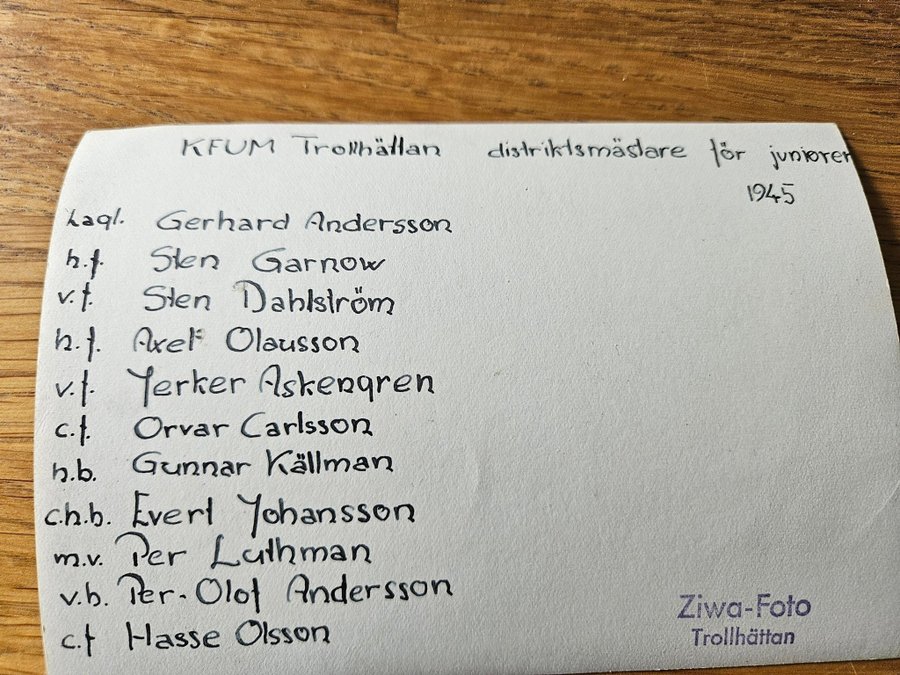 KFUM Trollhättan distriktsmästare för juniorer
1945
Lagl. Gerhard Andersson
h.f. Sten Garnow
v.f. Sten Dahlström
h.f. Axel Olausson
v.f. Yerker Askengren
c.f. Orvar Carlsson
h.b. Gunnar Källman
c.h.b. Evert Johansson
m.v. Per Luthman
v.b. Per-Olof Andersson
c.f Hasse Olsson
Ziwa-Foto
Trollhättan